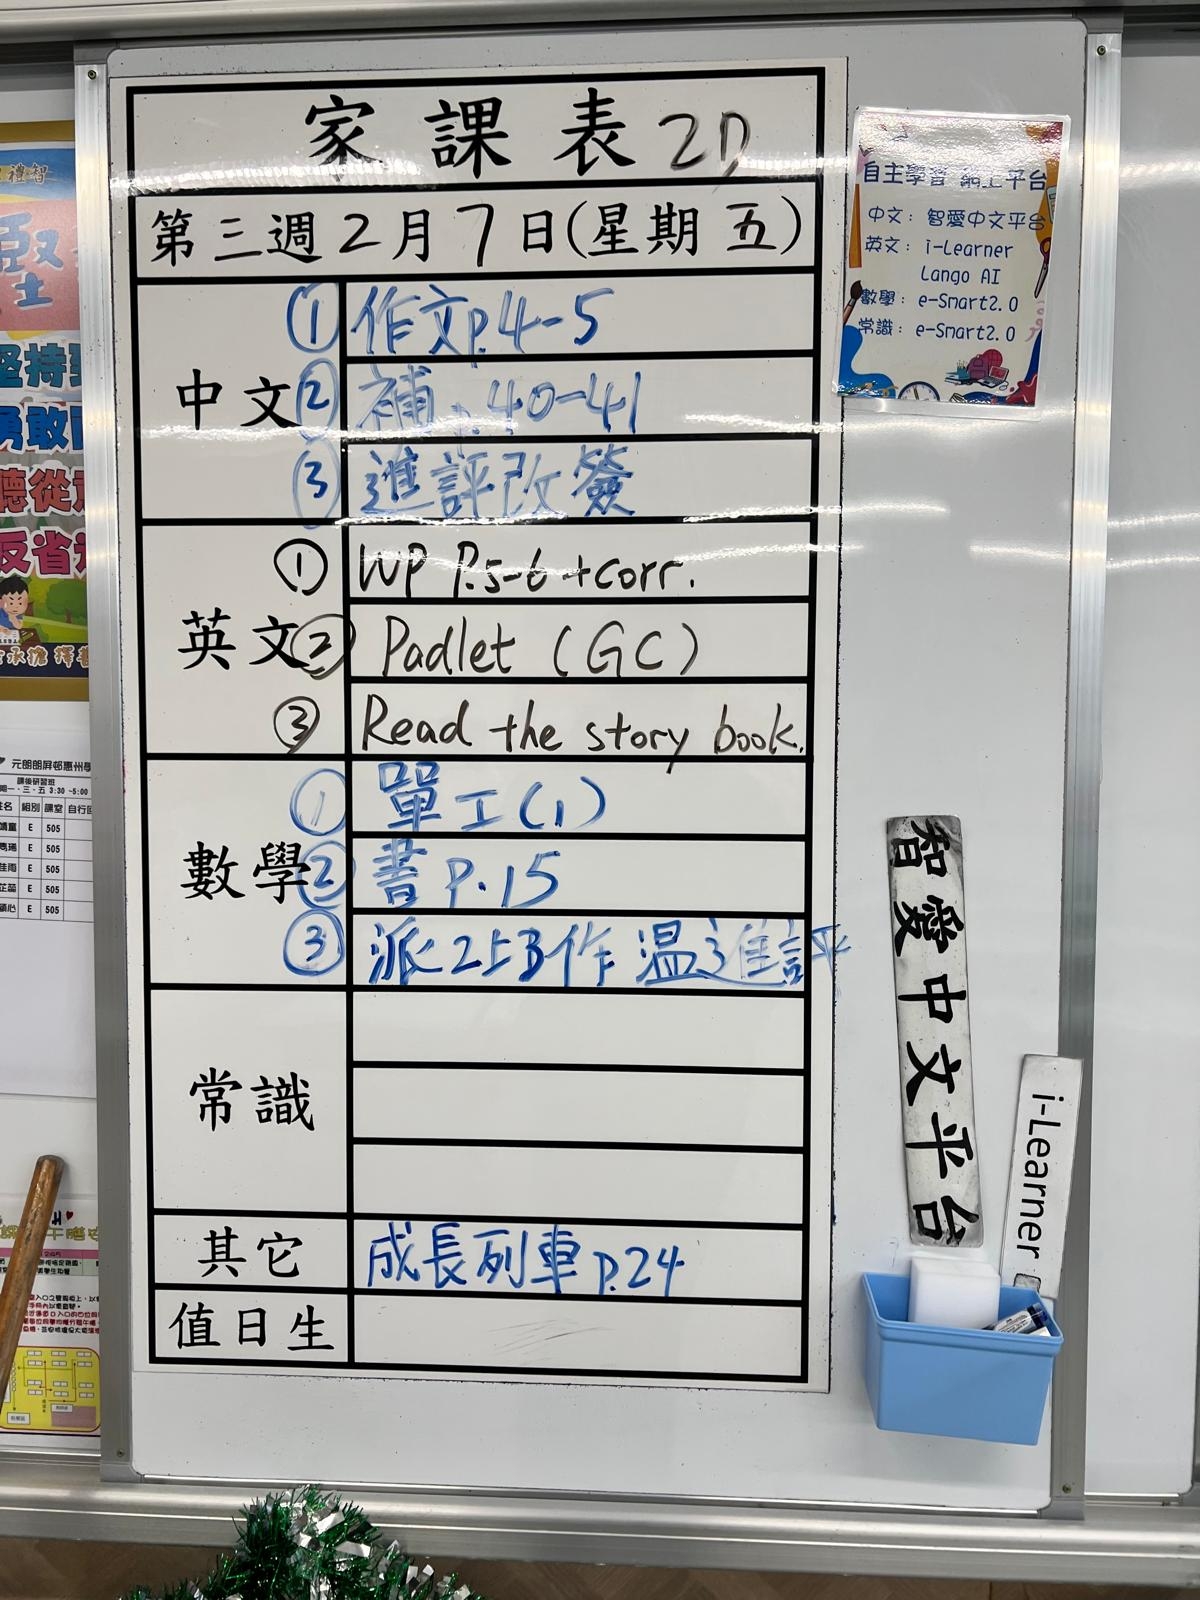 家課表 2D
第三週2月7日(星期五)
中文
① 作文p.4-5
② 補p.40-41
③ 進評改簽
英文
① WP P.5-6 +corr.
② Padlet (GC)
③ Read the story book.
數學
① 單工(1)
② 書P.15
③ 派2上B作 温進評
常識
其它
成長列車p.24
值日生
自主學習 網上平台
中文：智愛中文平台
英文：i-Learner
Lango AI
數學：e-Smart2.0
常識：e-Smart2.0
智愛中文平台
i-Learner
禮智
堅持
勇敢
聽從
反省
承擔
元朗朗屏邨惠州學
課後研習班
一、三、五 3:30 ~5:00
姓名 組別 課室 自行回
E 505
E 505
E 505
E 505
E 505